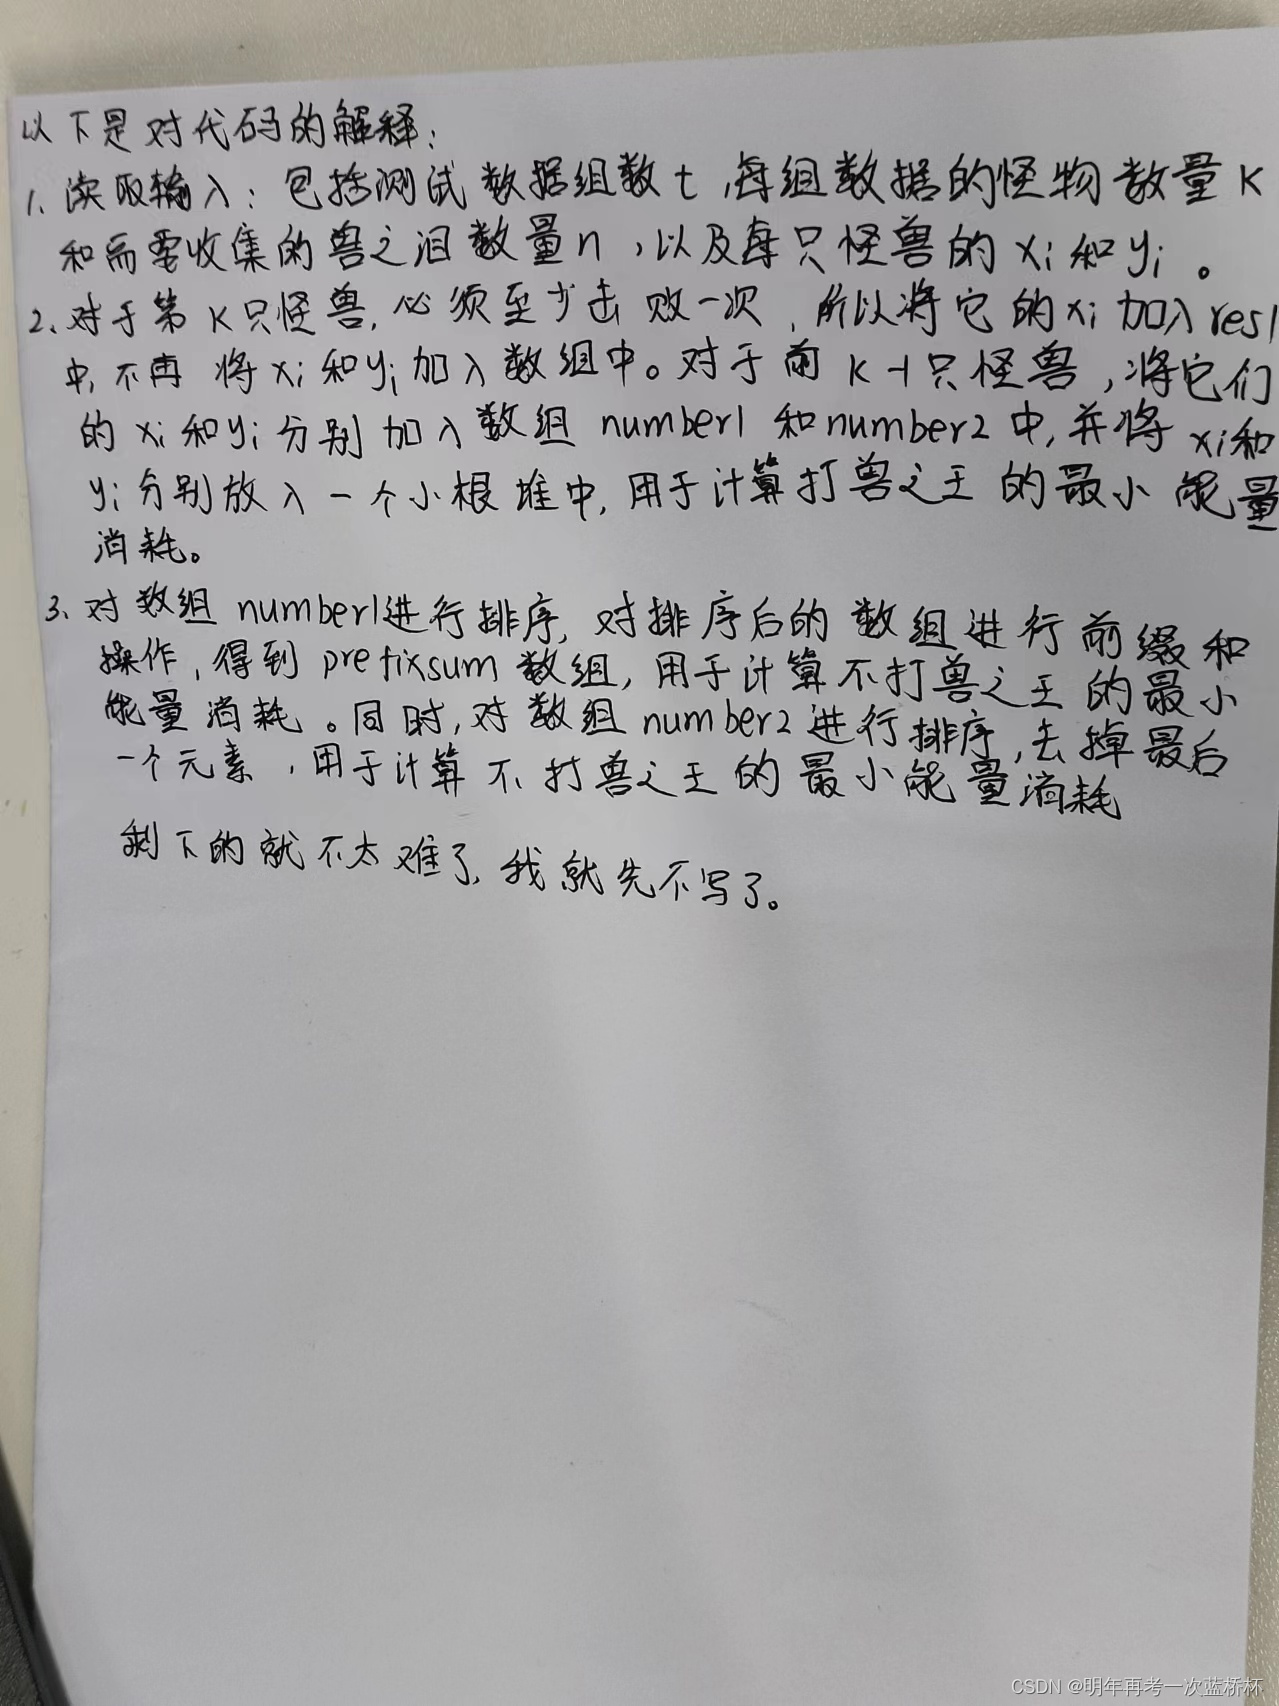 以下是对代码的解释：
1、读取输入：包括测试数据组数t，每组数据的怪物数量K
和需要收集的兽之泪数量n，以及每只怪兽的xi和yi。
2、对于第K只怪兽，必须至少击败一次，所以将它的xi加入res1
中，不再将xi和yi加入数组中。对于前K-1只怪兽，将它们
的xi和yi分别加入数组number1和number2中，并将xi和
yi分别放入一个小根堆中，用于计算打兽之王的最小能量
消耗。
3、对数组number1进行排序，对排序后的数组进行前缀和
操作，得到prefixsum数组，用于计算不打兽之王的最小
能量消耗。同时，对数组number2进行排序，去掉最后
一个元素，用于计算不打兽之王的最小能量消耗
剩下的就不太难了，我就先不写了。
CSDN @明年再考一次蓝桥杯